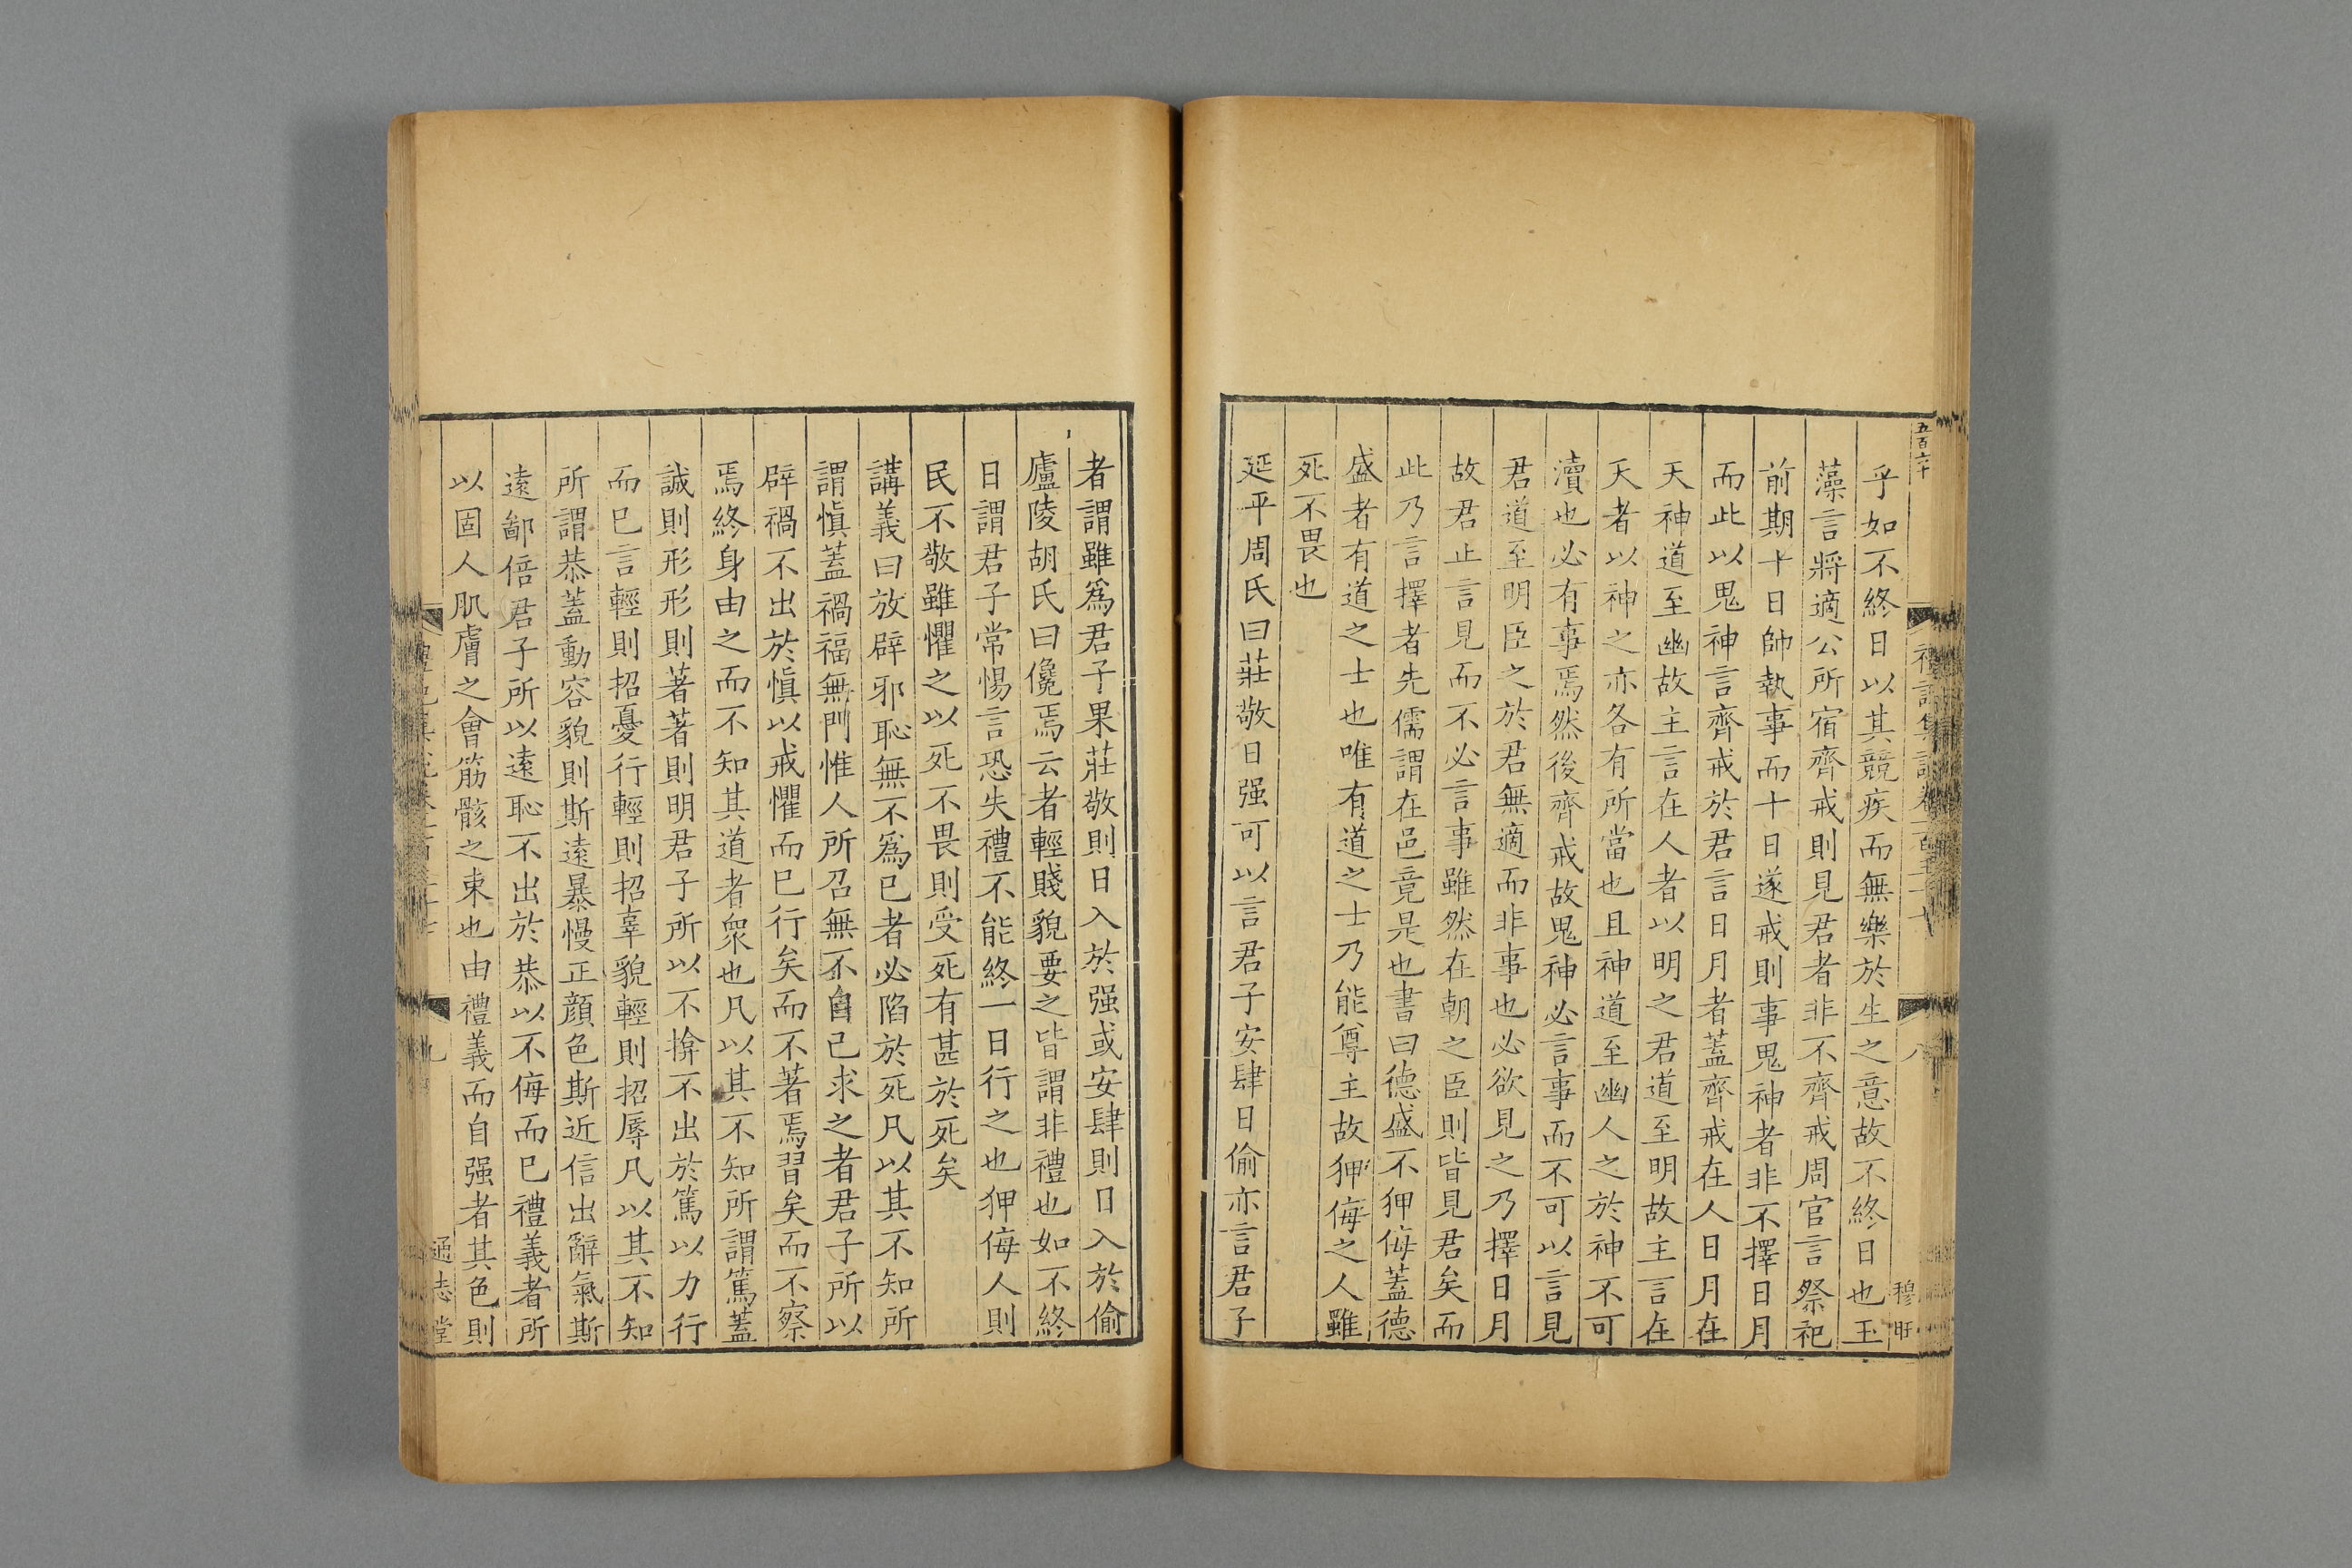 五百六十
穆旺
八
乎如不終日以其競疾而無樂於生之意故不終日也玉
藻言將適公所宿齊戒則見君者非不齊戒周官言祭祀
前期十日帥執事而十日遂戒則事鬼神者非不擇日月
而此以鬼神言齊戒於君言日月者蓋齊戒在人日月在
天神道至幽故主言在人者以明之君道至明故主言在
天者以神之亦各有所當也且神道至幽人之於神不可
瀆也必有事焉然後齊戒故鬼神必言事而不可以言見
君道至明臣之於君無適而非事也必欲見之乃擇日月
故君止言見而不必言事雖然在朝之臣則皆見君矣而
此乃言擇者先儒謂在邑竟是也書曰德盛不狎侮蓋德
盛者有道之士也唯有道之士乃能尊主故狎侮之人雖
死不畏也
延平周氏曰莊敬日强可以言君子安肆日偷亦言君子
者謂雖爲君子果莊敬則日入於强或安肆則日入於偷
廬陵胡氏曰儳焉云者輕賤貌要之皆謂非禮也如不終
日謂君子常惕言恐失禮不能終一日行之也狎侮人則
民不敬雖懼之以死不畏則受死有甚於死矣
講義曰放辟邪恥無不爲已者必陷於死凡以其不知所
謂愼蓋禍福無門惟人所召無不自己求之者君子所以
辟禍不出於愼以戒懼而已行矣而不著焉習矣而不察
焉終身由之而不知其道者衆也凡以其不知所謂篤蓋
誠則形形則著著則明君子所以不揜不出於篤以力行
而已言輕則招憂行輕則招辜貌輕則招辱凡以其不知
所謂恭蓋動容貌則斯遠暴慢正顔色斯近信出辭氣斯
遠鄙倍君子所以遠恥不出於恭以不侮而已禮義者所
以固人肌膚之會筋骸之束也由禮義而自强者其色則
九
通志堂